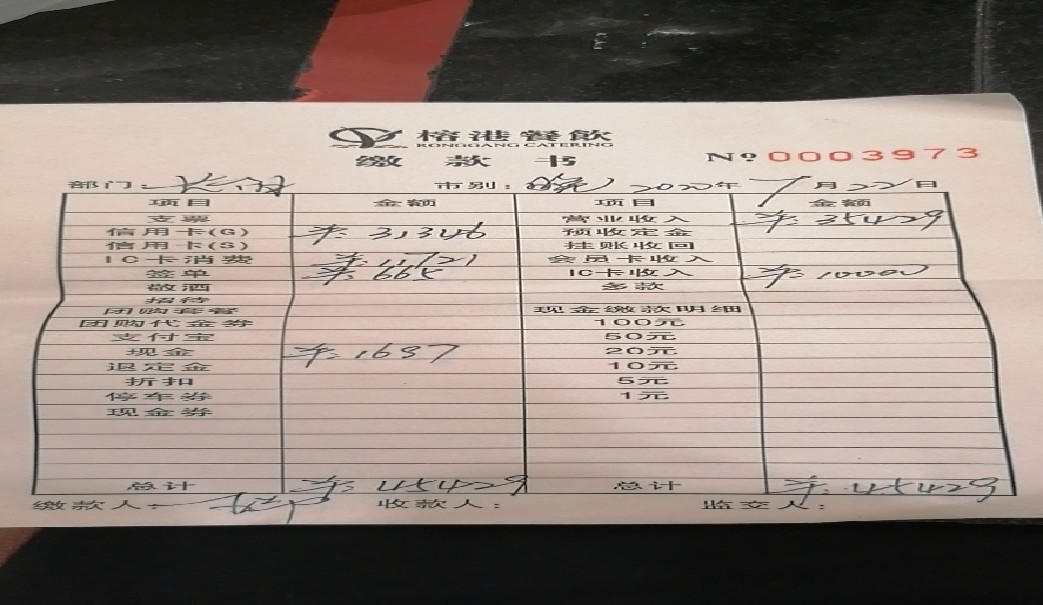 榕港餐飲
RONGGANG CATERING
缴款书
№ 0003973
部门: 市别: 晚 2022年 7月22日
项目 金额 项目 金额
支票 营业收入 ¥:35429
信用卡(G) ¥:31346 预收定金
信用卡(S) 挂账收回
IC卡消费 ¥:11721 会员卡收入
签单 ¥:665 IC卡收入 ¥:10000
敬酒 多款
招待
团购套餐 现金缴款明细
团购代金券 100元
支付宝 50元
现金 ¥:1697 20元
退定金 10元
折扣 5元
停车券 1元
现金券
总计 ¥:45429 总计 ¥:45429
缴款人: 收款人: 监交人: